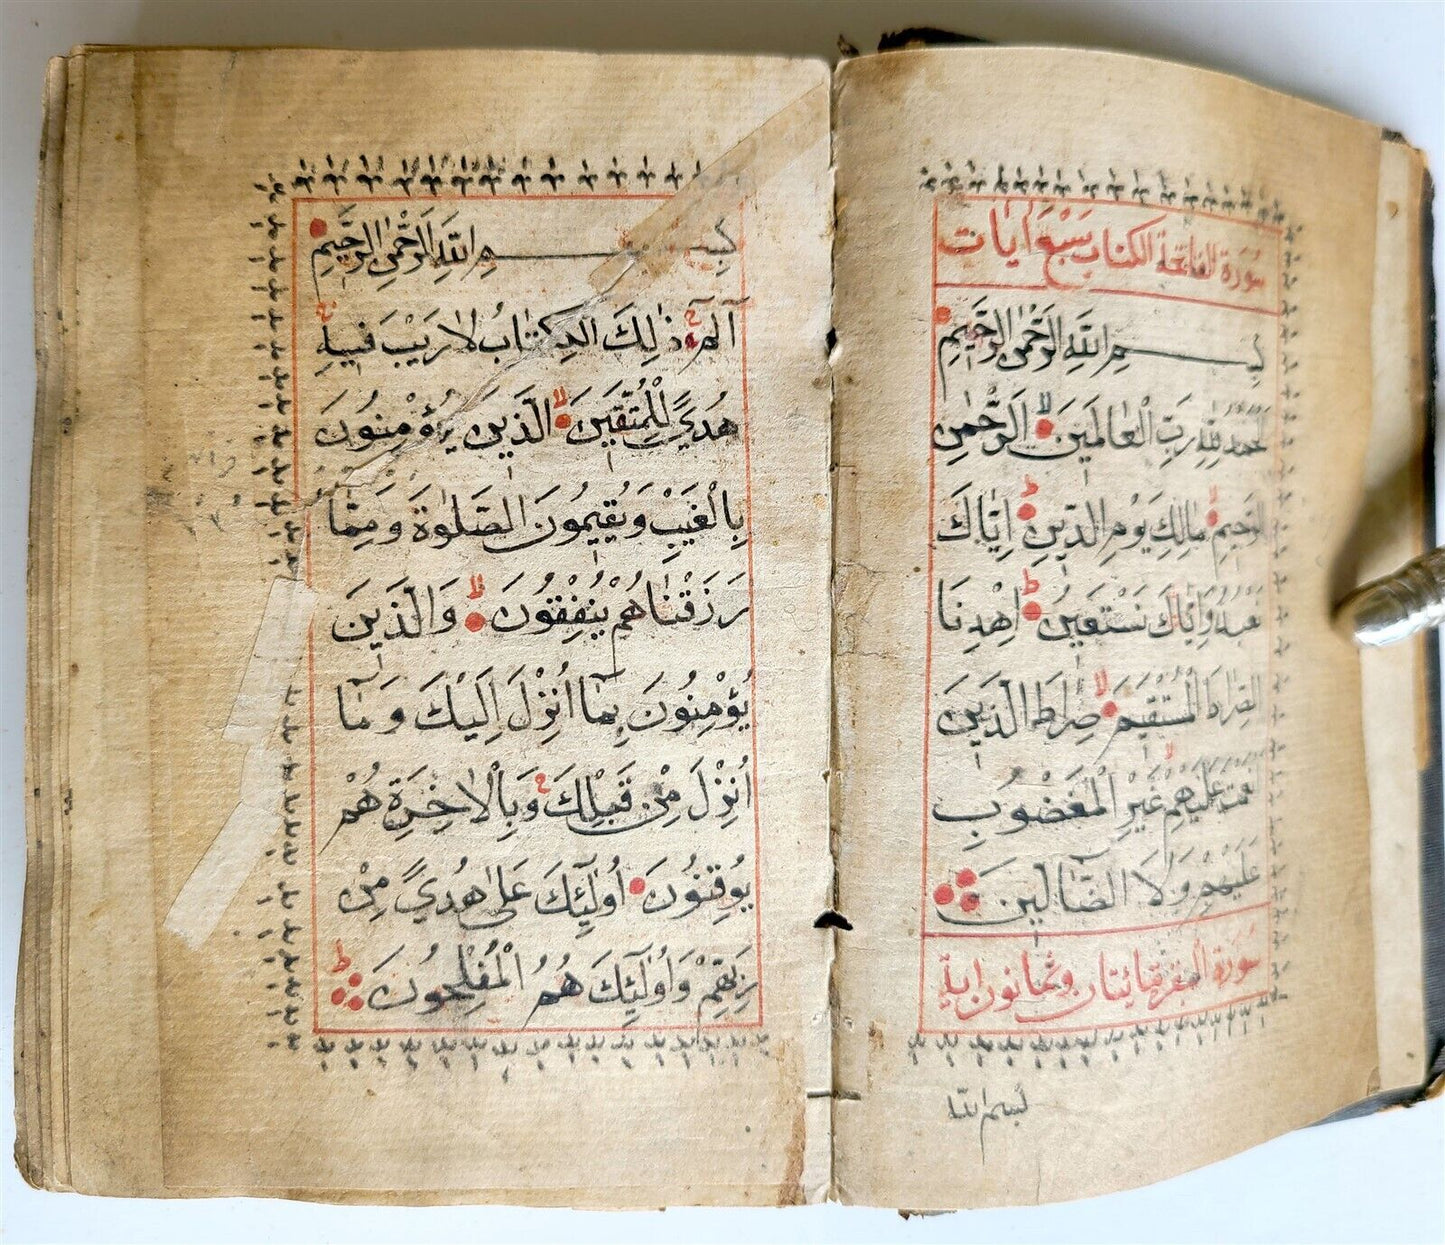 سورة الفاتحة الكتاب سبع ايات
بِسْمِ اللّٰهِ الرَّحْمٰنِ الرَّحِيمِ
اَلْحَمْدُ لِلّٰهِ رَبِّ الْعَالَمِينَ اَلرَّحْمٰنِ
الرَّحِيمِ مَالِكِ يَوْمِ الدِّينِ اِيَّاكَ
نَعْبُدُ وَاِيَّاكَ نَسْتَعِينُ اِهْدِنَا
الصِّرَاطَ الْمُسْتَقِيمَ صِرَاطَ الَّذِينَ
اَنْعَمْتَ عَلَيْهِمْ غَيْرِ الْمَغْضُوبِ
عَلَيْهِمْ وَلَا الضَّالِّينَ
سورة البقرة مائتان وثمانون اية
بسم الله
بِسْمِ اللّٰهِ الرَّحْمٰنِ الرَّحِيمِ
آلٓمٓ ذٰلِكَ الْكِتَابُ لَا رَيْبَ فِيهِ
هُدًى لِلْمُتَّقِينَ اَلَّذِينَ يُؤْمِنُونَ
بِالْغَيْبِ وَيُقِيمُونَ الصَّلٰوةَ وَمِمَّا
رَزَقْنَاهُمْ يُنْفِقُونَ وَالَّذِينَ
يُؤْمِنُونَ بِمَآ اُنْزِلَ اِلَيْكَ وَمَآ
اُنْزِلَ مِنْ قَبْلِكَ وَبِالْاٰخِرَةِ هُمْ
يُوقِنُونَ اُولٰٓئِكَ عَلٰى هُدًى مِنْ
رَبِّهِمْ وَاُولٰٓئِكَ هُمُ الْمُفْلِحُونَ